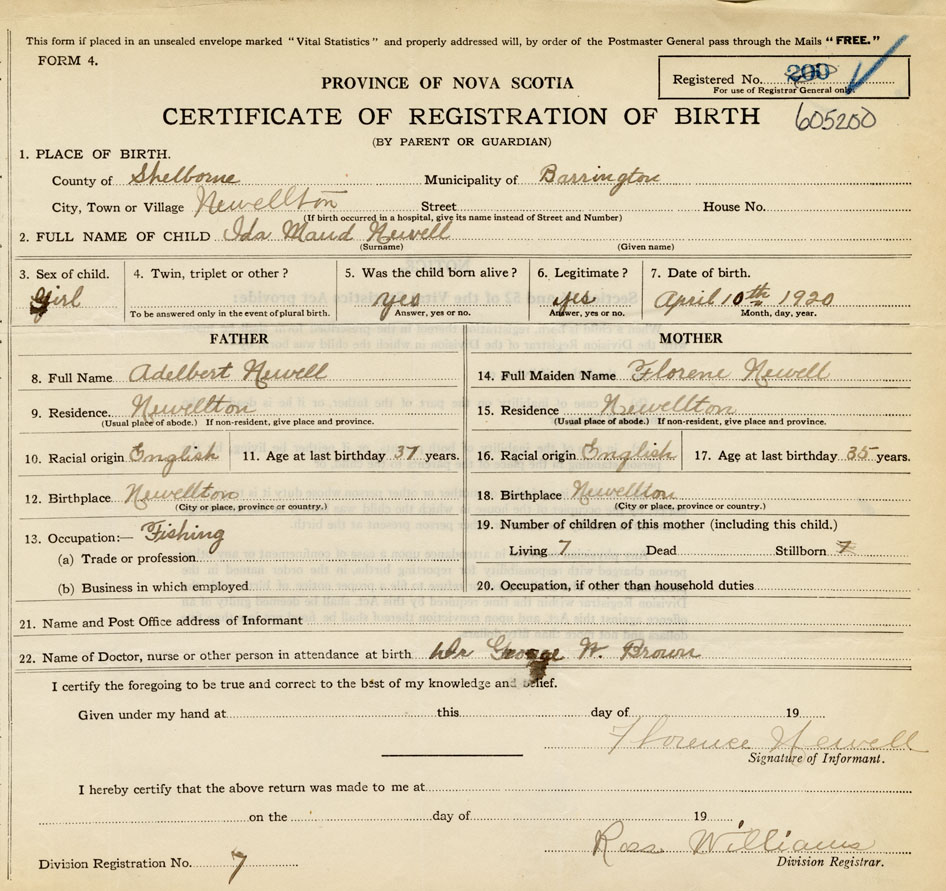 This form if placed in an unsealed envelope marked "Vital Statistics" and properly addressed will, by order of the Postmaster General pass through the Mails "FREE."
FORM 4.
Registered No. 200
For use of Registrar General only
PROVINCE OF NOVA SCOTIA
CERTIFICATE OF REGISTRATION OF BIRTH 605200
(BY PARENT OR GUARDIAN)
1. PLACE OF BIRTH.
County of Shelborne Municipality of Barrington
City, Town or Village Newellton Street House No.
(If birth occurred in a hospital, give its name instead of Street and Number)
2. FULL NAME OF CHILD Ida Maud Newell
(Surname) (Given name)
3. Sex of child. 4. Twin, triplet or other? 5. Was the child born alive? 6. Legitimate? 7. Date of birth.
Girl yes yes April 10th 1920
To be answered only in the event of plural birth. Answer, yes or no. Answer, yes or no. Month, day, year.
FATHER MOTHER
8. Full Name Adelbert Newell 14. Full Maiden Name Florene Newell
9. Residence. Newellton 15. Residence Newellton
(Usual place of abode.) If non-resident, give place and province. (Usual place of abode.) If non-resident, give place and province.
10. Racial origin English 11. Age at last birthday 37 years. 16. Racial origin English 17. Age at last birthday 35 years.
12. Birthplace Newellton 18. Birthplace Newellton
(City or place, province or country.) (City or place, province or country.)
13. Occupation:— Fishing 19. Number of children of this mother (including this child.)
(a) Trade or profession Living 7 Dead Stillborn 7
(b) Business in which employed 20. Occupation, if other than household duties
21. Name and Post Office address of Informant
22. Name of Doctor, nurse or other person in attendance at birth Dr George W. Brown
I certify the foregoing to be true and correct to the best of my knowledge and belief.
Given under my hand at this day of 19
Florence Newell
Signature of Informant.
I hereby certify that the above return was made to me at
on the day of 19
Ross Williams
Division Registration No. 7 Division Registrar.